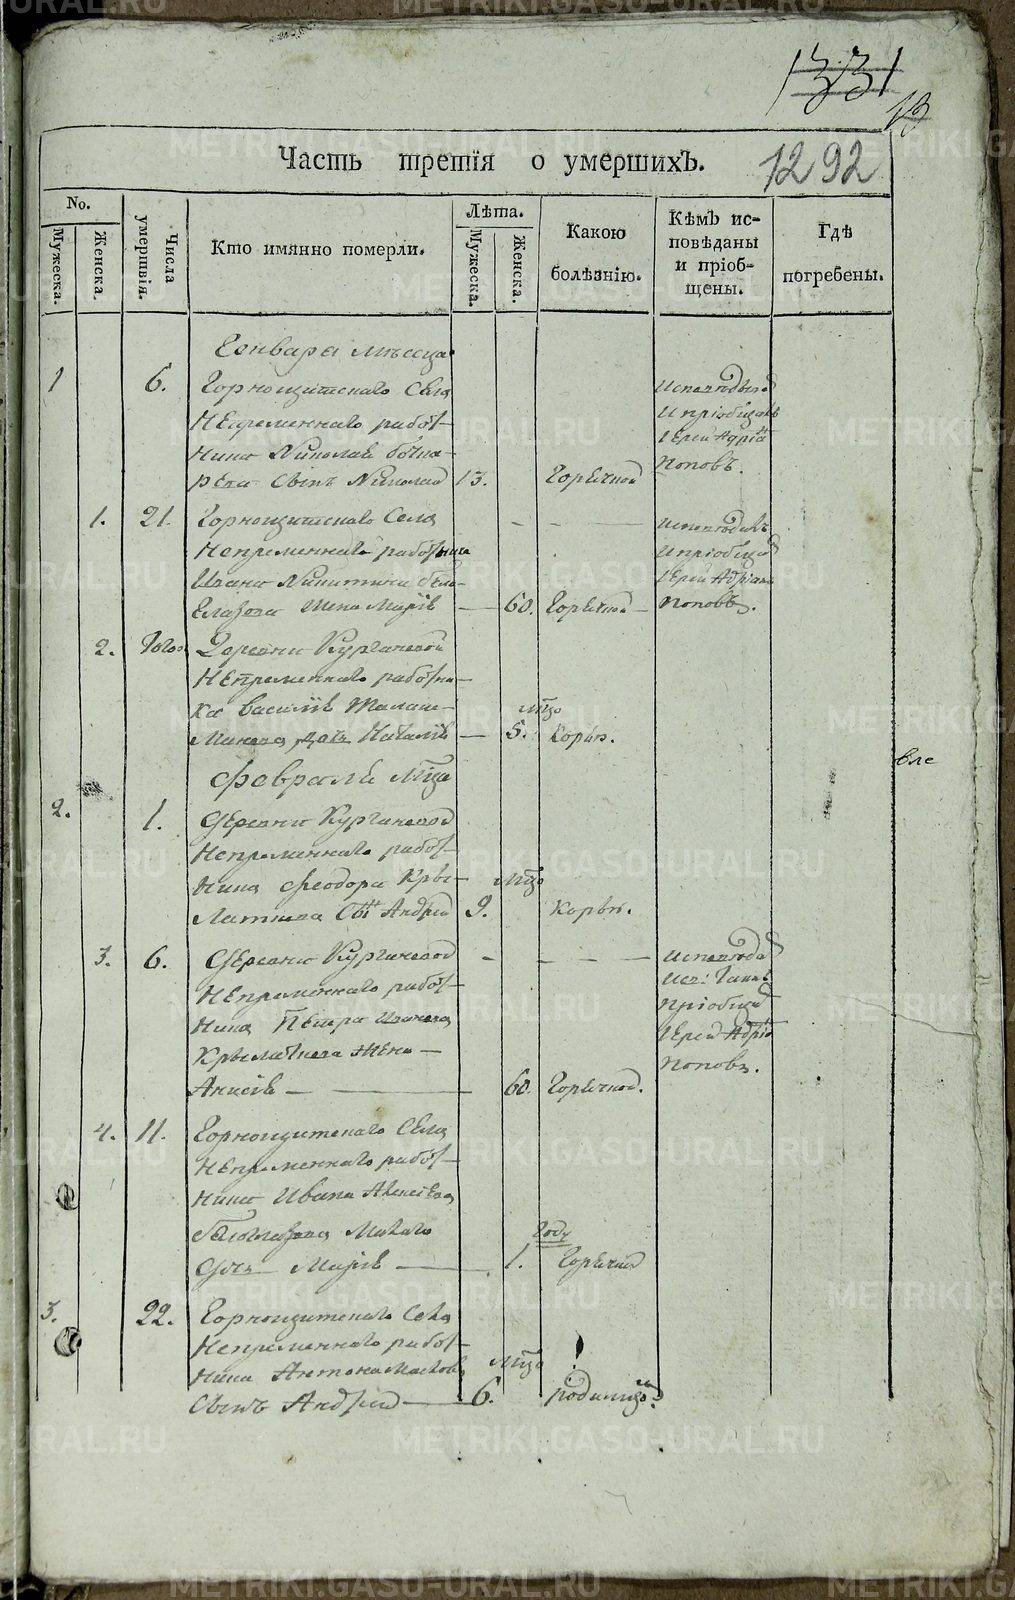 1331
13
Часть третія о умершихЪ.
1292
No.
Мужеска.
Женска.
Числа умершвія.
Кто имянно померли.
Лѣта.
Мужеска.
Женска.
Какою болѣзнію.
КѣмЪ исповѣданы и пріобщены.
Гдѣ погребены.
Генваря мѣсеца
1 6. Горнощитскаго Села
Непременнаго работ-
ника Николая
сынъ Николай 13. Горячкой
Исповѣдывал
и пріобщалъ
Іерей Адріан
Поповъ.
1. 21. Горнощитскаго Села
Непременнаго работника
Ивана Никитина Бело-
глазова жена Марія 60. Горячкой
исповѣдалъ
и пріобщал
Іерей Адріанъ
Поповъ.
2. Деревни Кургановой
Непременнаго работни-
ка Василія
дочь Наталія мцо 5. Корью.
Февраля мца
2. 1. Деревни Кургановой
Непременнаго работ-
ника Феодора Кры-
латкова сынъ Андрей мцо 9. Корью.
вле
3. 6. Деревни Кургановой
Непременнаго работ-
ника Петра Иванова
Крылаткова жена
Анисія 60. Горячкой.
исповѣдал
пріобщал
Іерей Адріан
Поповъ.
4. 11. Горнощитскаго Села
Непременнаго работ-
ника Ивана Алексіева
Белоглазова
дочь Марія году 1. Горячкой
3. 22. Горнощитскаго Села
Непременнаго работ-
ника Антона
Сынъ Андрей мцо 6. родимцо.
METRIKI.GASO-URAL.RU